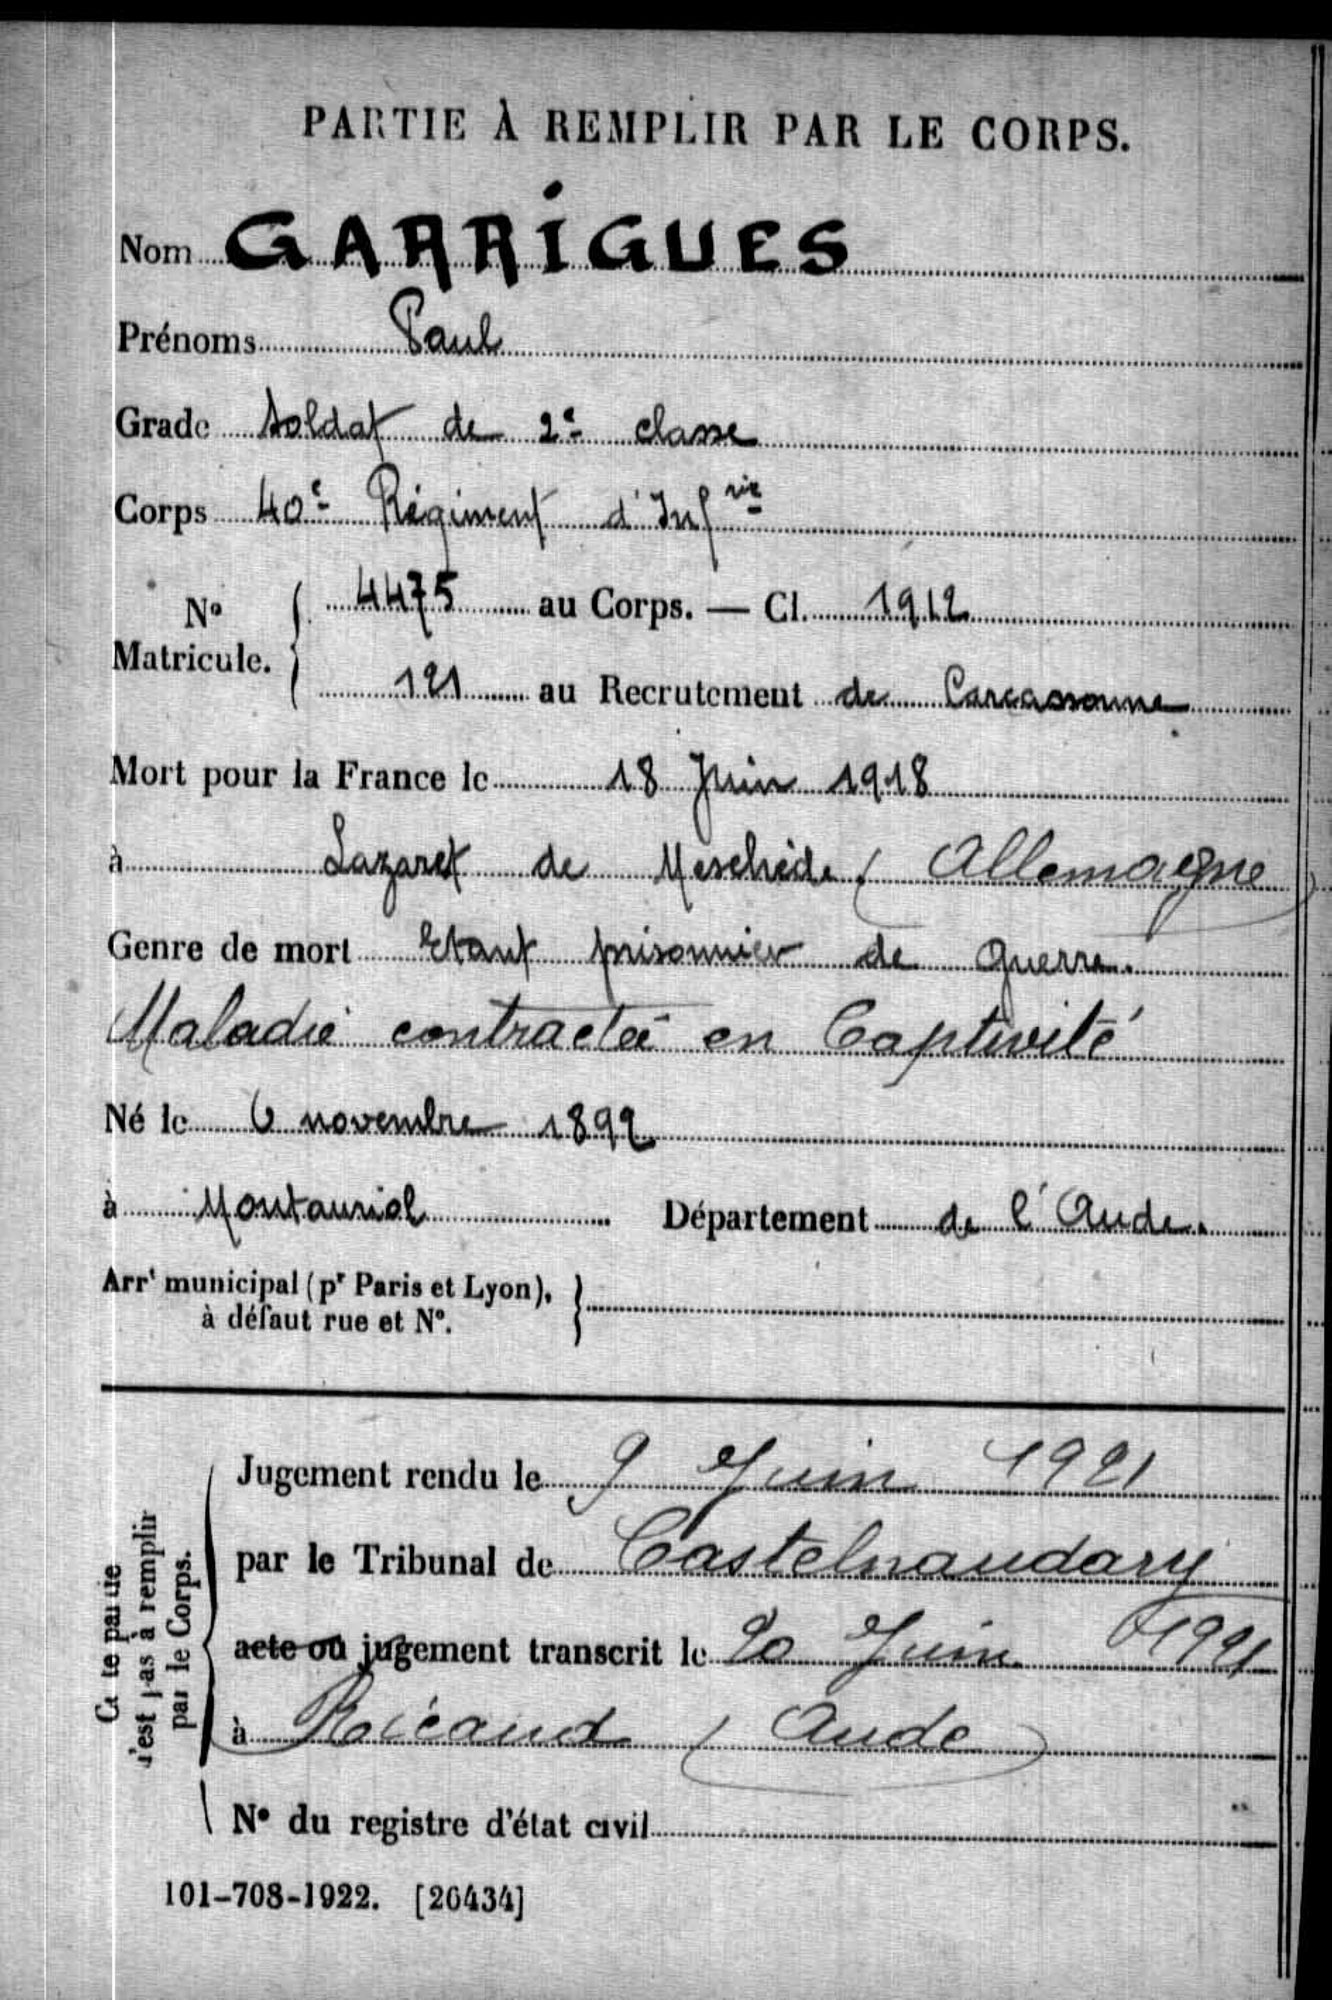 PARTIE À REMPLIR PAR LE CORPS.
Nom GARRIGUES
Prénoms Paul
Grade Soldat de 2e classe
Corps 40e Régiment d'Infrie
No Matricule. 4475 au Corps. — Cl. 1912
121 au Recrutement de Carcassonne
Mort pour la France le 18 Juin 1918
à Lazaret de Meschède (Allemagne)
Genre de mort Etant prisonnier de guerre.
Maladie contractée en Captivité
Né le 6 novembre 1892
à Montauriol Département de l'Aude.
Arrt municipal (pr Paris et Lyon),
à défaut rue et No.
Cette partie
n'est pas à remplir
par le Corps.
Jugement rendu le 9 Juin 1921
par le Tribunal de Castelnaudary
acte ou jugement transcrit le 20 Juin 1921
à Ricaud (Aude)
No du registre d'état civil
101-708-1922. [26434]